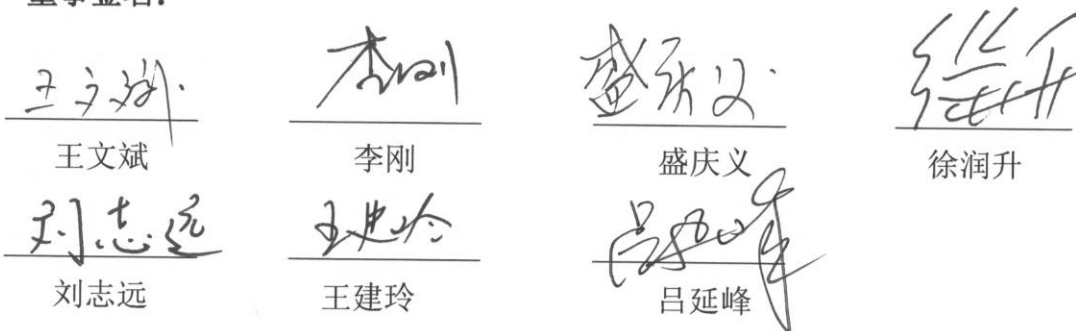 王文斌 李刚 盛庆义 徐升
王文斌 李刚 盛庆义 徐润升
刘志远 王建玲 吕延峰
刘志远 王建玲 吕延峰